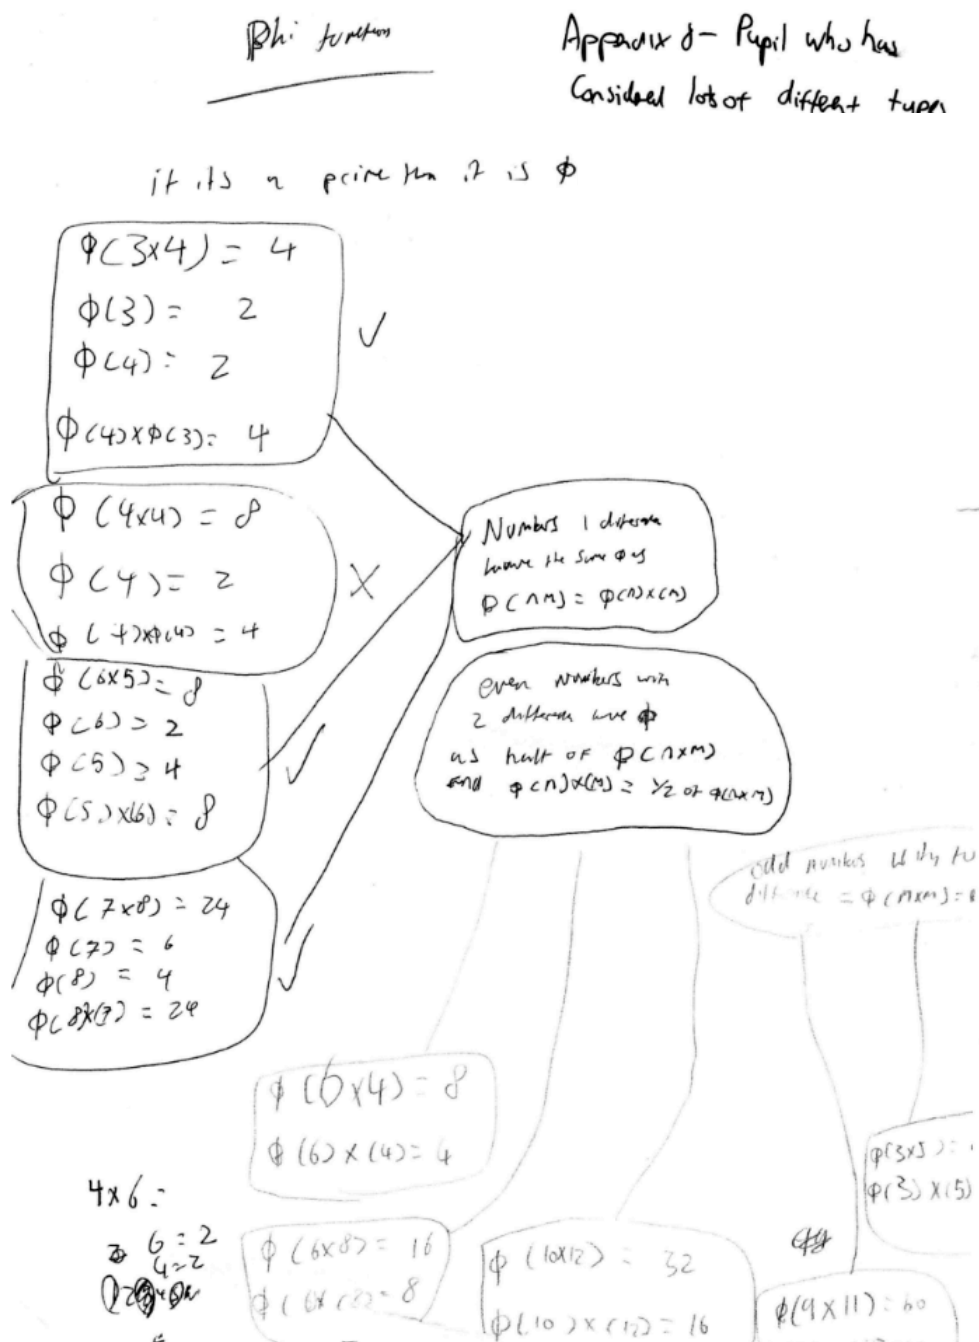 Phi function
Appendix 8 - Pupil who has
Considered lots of different types
if its a prime then it is ϕ
ϕ(3x4) = 4
ϕ(3) = 2
ϕ(4) = 2
ϕ(4)xϕ(3) = 4
✓
ϕ (4x4) = 8
ϕ (4) = 2
ϕ (4)xϕ(4) = 4
X
ϕ (6x5) = 8
ϕ (6) = 2
ϕ (5) = 4
ϕ(5)x(6) = 8
✓
ϕ(7x8) = 24
ϕ(7) = 6
ϕ(8) = 4
ϕ(8)x(7) = 24
✓
Numbers 1 difference
have the same ϕ as
ϕ(nm) = ϕ(n)x(m)
even numbers with
2 difference have ϕ
as half of ϕ(nxm)
and ϕ(n)x(m) = 1/2 of ϕ(nxm)
odd numbers with
difference = ϕ(nxm) =
ϕ(6x4) = 8
ϕ(6)x(4) = 4
ϕ(6x8) = 16
ϕ(6)x(8) = 8
ϕ(10x12) = 32
ϕ(10)x(12) = 16
ϕ(3x5) =
ϕ(3)x(5)
ϕ(9x11) = 60
4x6 =
6 = 2
4 = 2